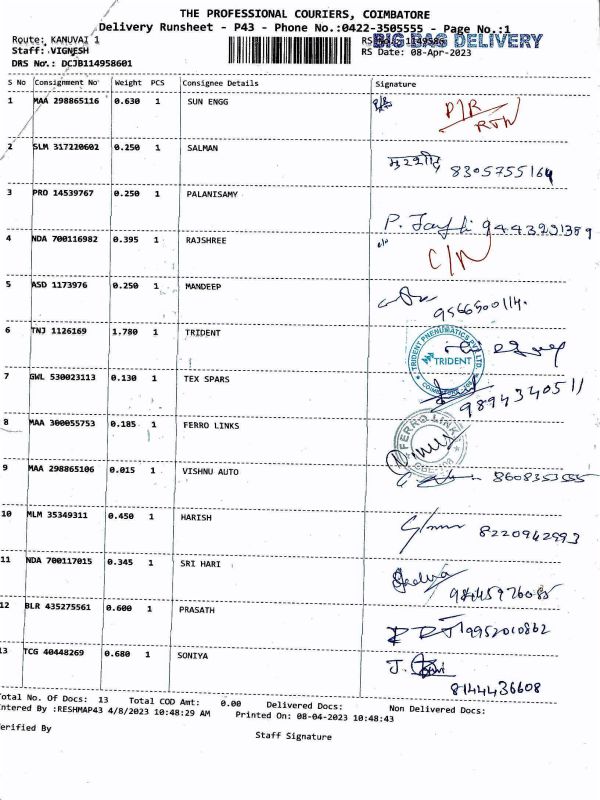 THE PROFESSIONAL COURIERS, COIMBATORE
Delivery Runsheet - P43 - Phone No.:0422-3505555 - Page No.:1
BIG BAG DELIVERY
Route: KANUVAI 1
Staff: VIGNESH
RS Date: 08-Apr-2023
DRS No.: DCJB114958601
S No Consignment No Weight PCS Consignee Details Signature
1 MAA 298865116 0.630 1 SUN ENGG D/R RTN
2 SLM 317220602 0.250 1 SALMAN 8305755164
3 PRO 14539767 0.250 1 PALANISAMY P. 9443231389
4 NDA 700116982 0.395 1 RAJSHREE C/N
5 ASD 1173976 0.250 1 MANDEEP
6 TNJ 1126169 1.780 1 TRIDENT TRIDENT PNEUMATICS PVT LTD. TRIDENT
7 GWL 530023113 0.130 1 TEX SPARS 9894340511
8 MAA 300055753 0.185 1 FERRO LINKS FERRO LINK
9 MAA 298865106 0.015 1 VISHNU AUTO 8608353555
10 MLM 35349311 0.450 1 HARISH 8220942993
11 NDA 700117015 0.345 1 SRI HARI
12 BLR 435275561 0.600 1 PRASATH 9952010862
13 TCG 40448269 0.680 1 SONIYA J. 8144436608
Total No. Of Docs: 13 Total COD Amt: 0.00 Delivered Docs: Non Delivered Docs:
Entered By :RESHMAP43 4/8/2023 10:48:29 AM Printed On: 08-04-2023 10:48:43
Verified By
Staff Signature